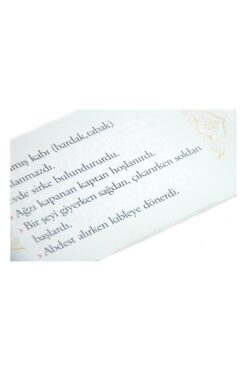 mış kabı (bardak,tabak)
lanmazdı.
Evde sirke bulundururdu.
› Ağzı kapanan kaptan hoşlanırdı.
› Bir şeyi giyerken sağdan, çıkarırken soldan
başlardı.
› Abdest alırken kıbleye dönerdi.